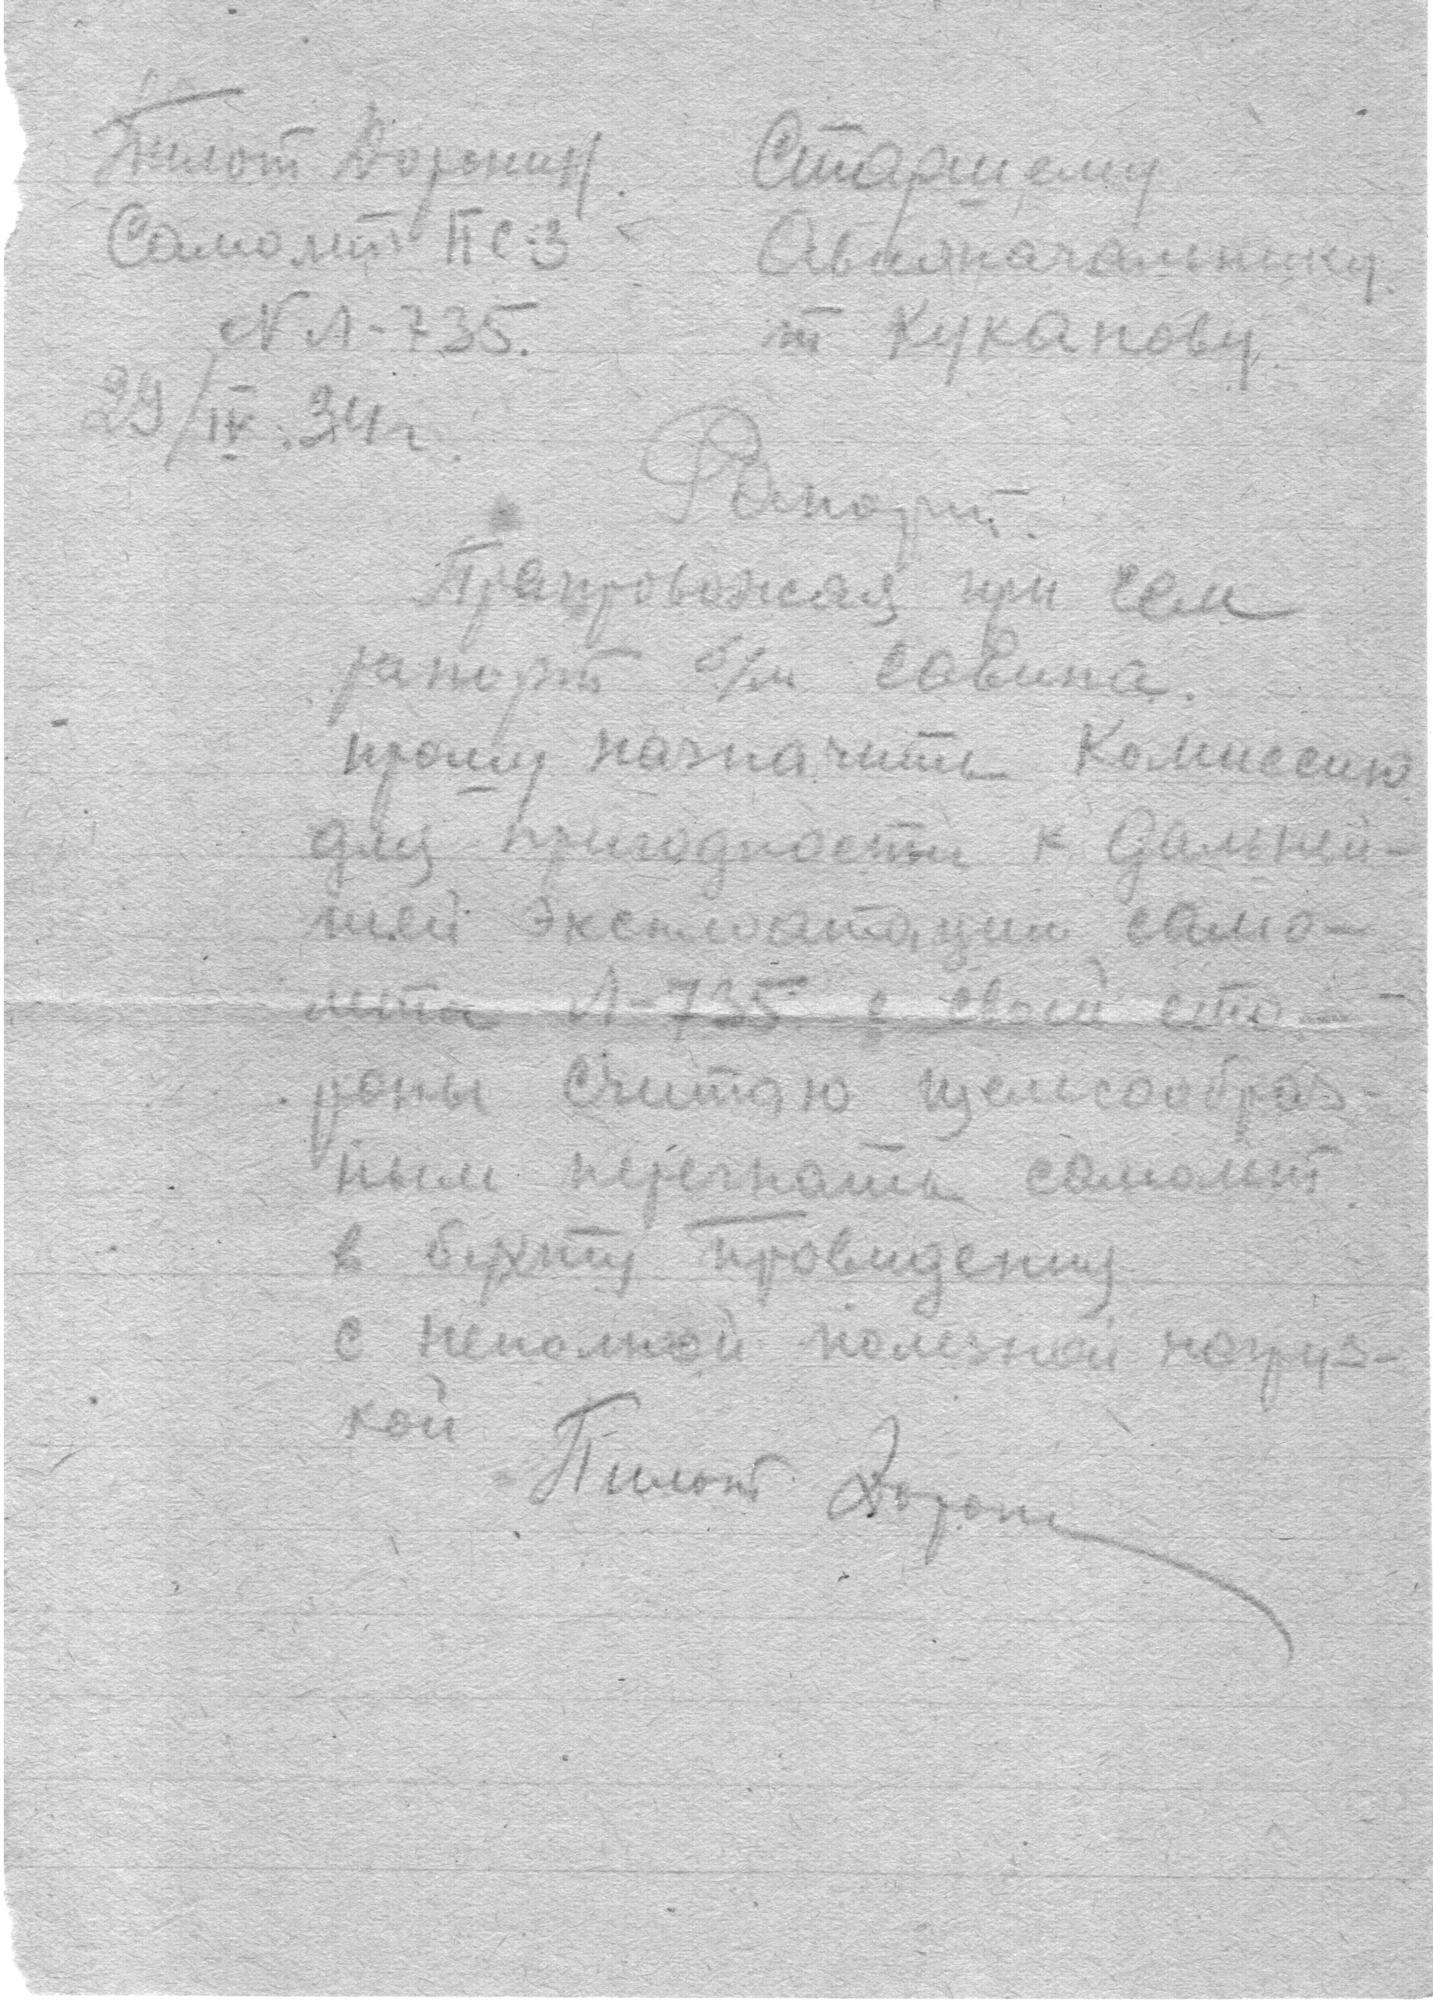 Пилот Доронин.
Самолет ПС-3
№ Л-735.
29/IV.34г.
Старшему
Авианачальнику.
т Куканову.
Рапорт.
Препровождая при сем
рапорт б/м Савина.
прошу назначить Комиссию
для пригодности к дальней-
шей эксплоатации само-
лета Л-735. с своей сто-
роны считаю целесообраз-
ным перегнать самолет
в бухту Провидения
с неполной полезной нагруз-
кой
Пилот Дорон